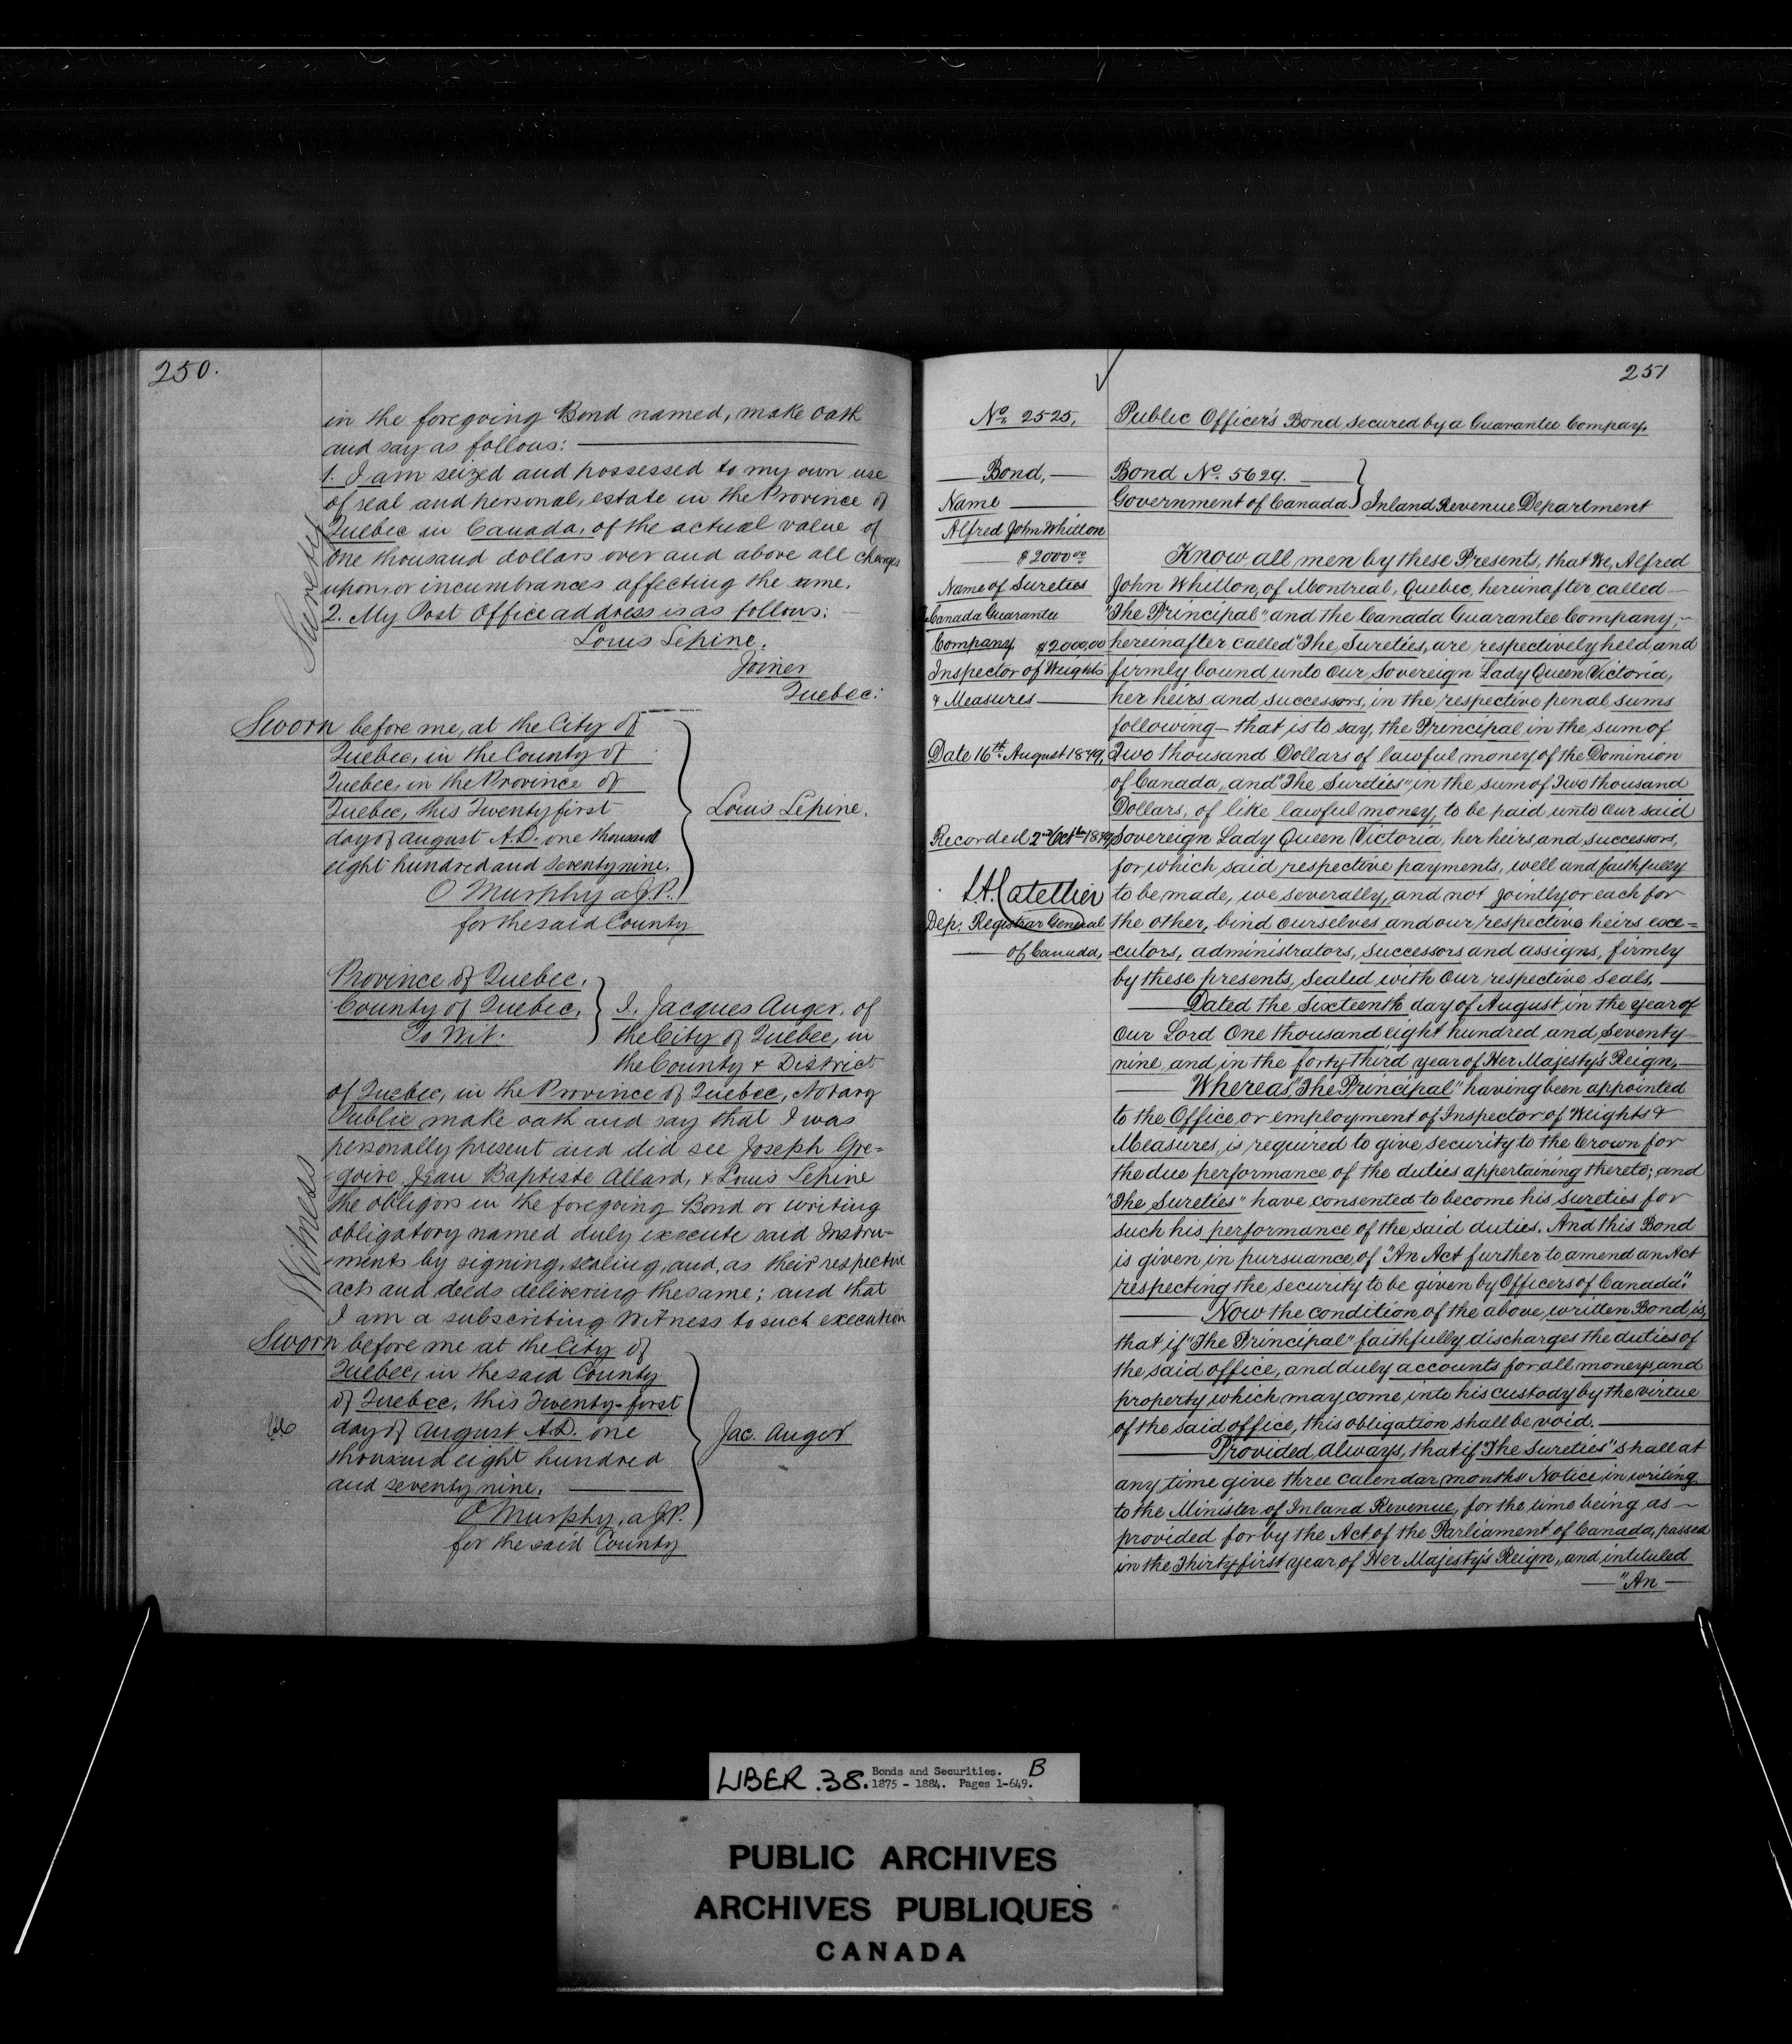 250.
in the foregoing Bond named, make oath
and say as follows:
1. I am seized and possessed to my own use
of real and personal, estate in the Province of
Quebec in Canada, of the actual value of
One thousand dollars over and above all charges
upon, or incumbrances affecting the same.
2. My Post Office address is as follows:
Louis Lepine.
Joiner
Quebec.
Surety
Sworn before me, at the City of
Quebec, in the County of
Quebec, in the Province of
Quebec, this Twenty first
day of august A.D. one thousand
eight hundred and seventy nine.
O Murphy a J.P.
for the said County
Louis Lepine.
Province of Quebec.
County of Quebec,
To Wit.
I. Jacques Auger, of
the City of Quebec, in
the County & District
of Quebec, in the Province of Quebec, Notary
Public make oath and say that I was
personally present and did see Joseph Gre=
goire, Jean Baptiste Allard, & Louis Lepine
the obligors in the foregoing Bond or writing
obligatory named duly execute said Instru-
-ments by signing, sealing, and, as their respective
acts and deeds delivering the same; and that
I am a subscribing Witness to such execution
Witness
Sworn before me at the City of
Quebec, in the said County
of Quebec, this Twenty-first
day of August A.D. one
thousand eight hundred
and seventy nine.
O Murphy, a J.P.
for the said County
Jac. Auger
251
No. 2525,
Bond,
Name
Alfred John Whitton
$2000.00
Name of Sureties
Canada Guarantee
Company $2000.00
Inspector of Weights
& Measures
Date 16th August 1879,
Recorded 2nd Octbr 1879,
L.A. Catellier
Dep. Registrar General
of Canada,
Public Officer's Bond secured by a Guarantee Compay.
Bond No. 5629.
Government of Canada } Inland Revenue Department
Know all men by these Presents, that We, Alfred
John Whitton, of Montreal, Quebec, hereinafter called
"The Principal" and the Canada Guarantee Company,
hereinafter called "The Sureties, are respectively held and
firmly bound unto Our Sovereign Lady Queen Victoria,
her heirs and successors, in the respective penal sums
following - that is to say, the Principal in the sum of
Two thousand Dollars of lawful money of the Dominion
of Canada, and "The Sureties" in the sum of Two thousand
Dollars, of like lawful money, to be paid unto Our said
Sovereign Lady Queen Victoria, her heirs, and successors,
for which said respective payments, well and faithfully
to be made, we severally, and not jointly or each for
the other, bind ourselves and our respective heirs exe=
cutors, administrators, successors and assigns, firmly
by these presents, sealed with Our respective Seals,
Dated the Sixteenth day of August in the year of
Our Lord One thousand eight hundred and seventy
nine and in the forty third year of Her Majesty's Reign,
Whereas, "The Principal" having been appointed
to the Office or employment of Inspector of Weights &
Measures, is required to give security to the Crown for
the due performance of the duties appertaining thereto; and
"The Sureties" have consented to become his sureties for
such his performance of the said duties. And this Bond
is given in pursuance of "An Act further to amend an Act
respecting the security to be given by Officers of Canada".
Now the condition of the above written Bond is,
that if "The Principal" faithfully discharges the duties of
the said office, and duly accounts for all moneys and
property which may come into his custody by the virtue
of the said office, this obligation shall be void.
Provided, always, that if "The Sureties" shall at
any time give three calendar months Notice in writing
to the Minister of Inland Revenue, for the time being as
provided for by the Act of the Parliament of Canada, passed
in the Thirty first year of Her Majesty's Reign, and intituled
"An
LIBER .38. Bonds and Securities. B
1875 - 1884. Pages 1-649.
PUBLIC ARCHIVES
ARCHIVES PUBLIQUES
CANADA